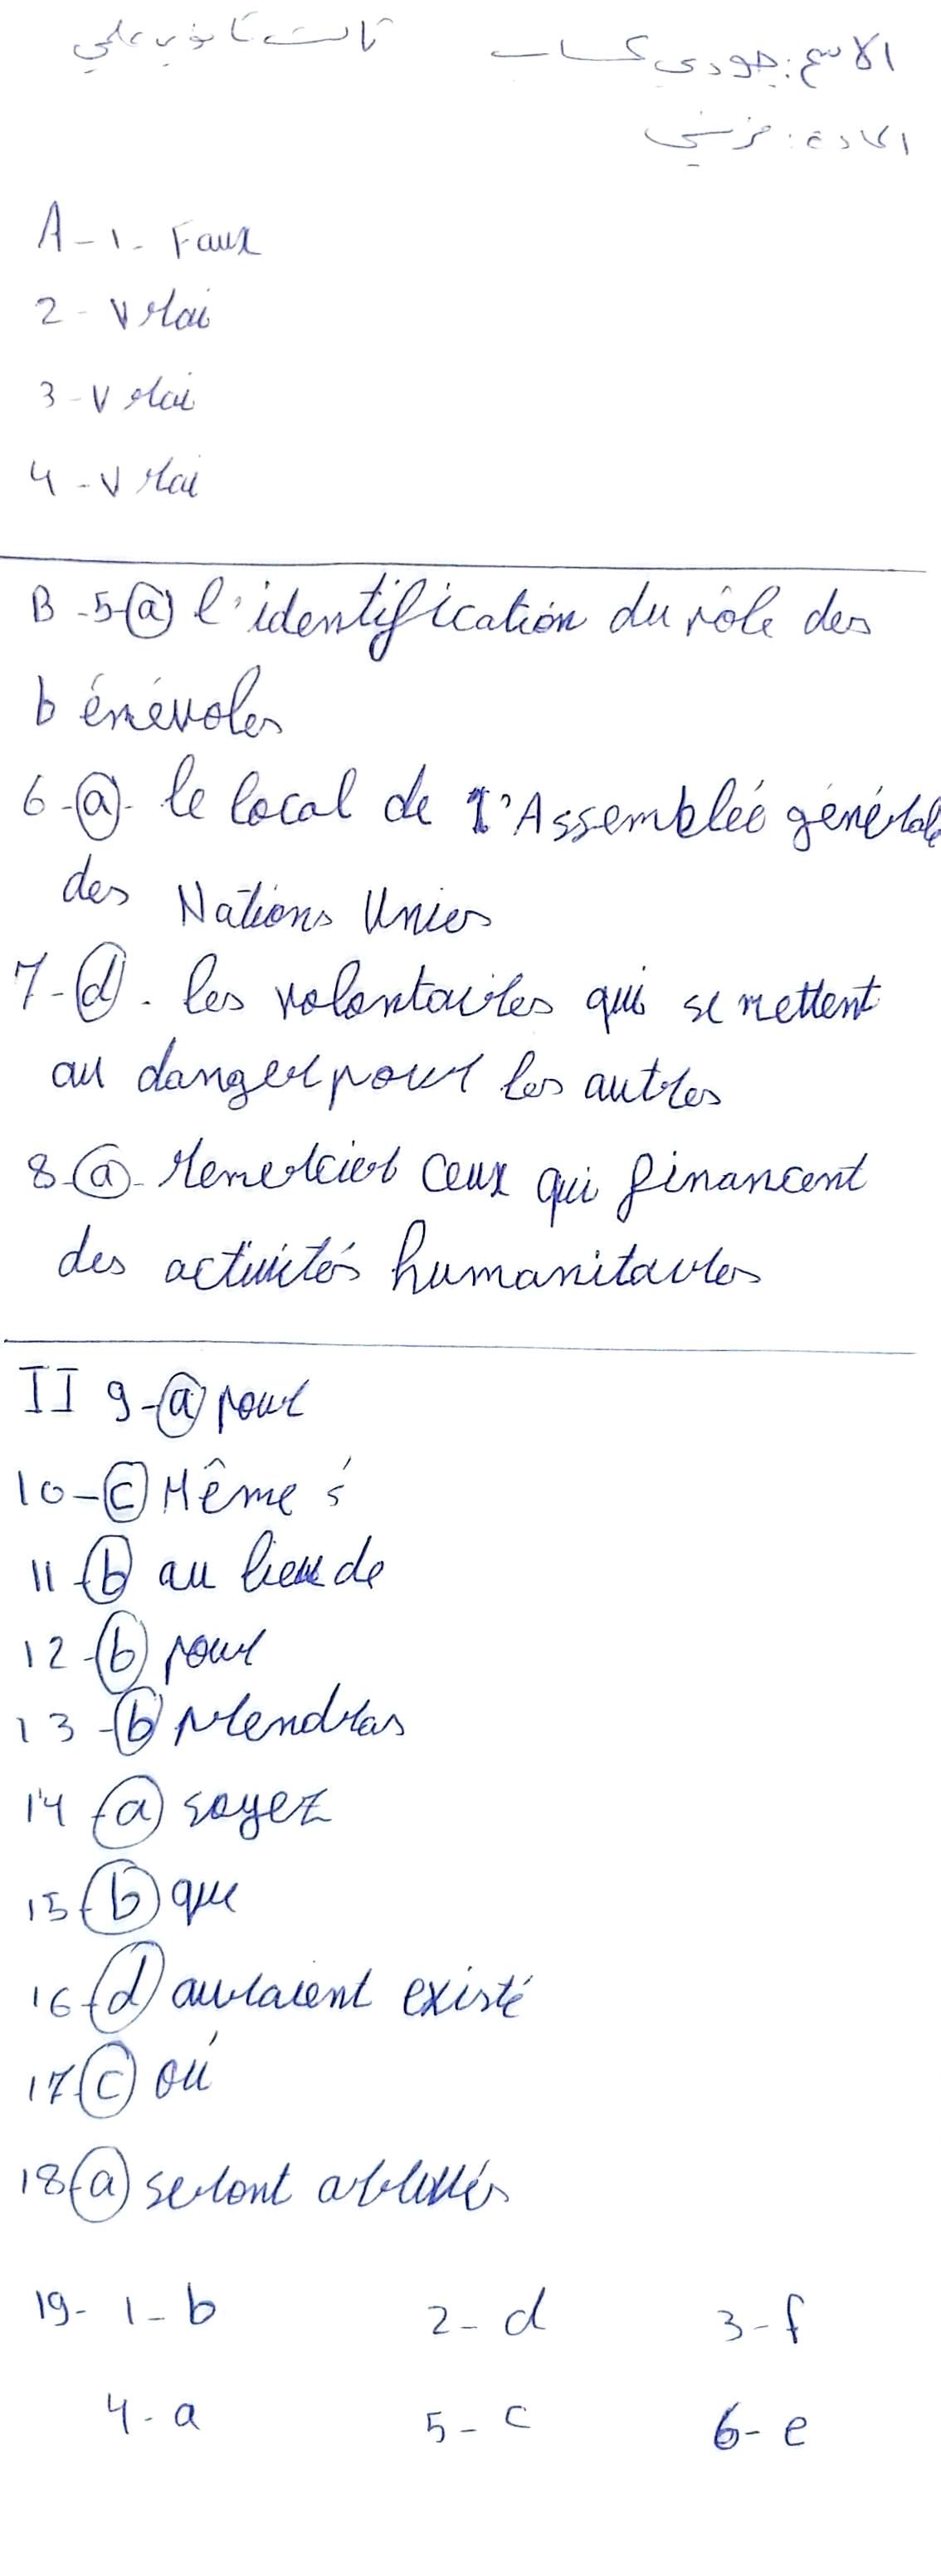 الاسم: جودي كساب ثالث ثانوي علمي
المادة: فرنسي
A-1- Faux
2- Vrai
3-Vrai
4-Vrai
B-5-a l'identification du rôle des
bénévoles
6-a- le local de l'Assemblée générale
des Nations Unies
7-d- les volontaires qui se mettent
au danger pour les autres
8-a- remercier ceux qui financent
des activités humanitaires
II 9-a pour
10-c Même s'
11-b au lieu de
12-b pour
13-b prendras
14-a soyez
15-b que
16-d auraient existé
17-c où
18-a seront
19- 1-b 2-d 3-f
4-a 5-c 6-e